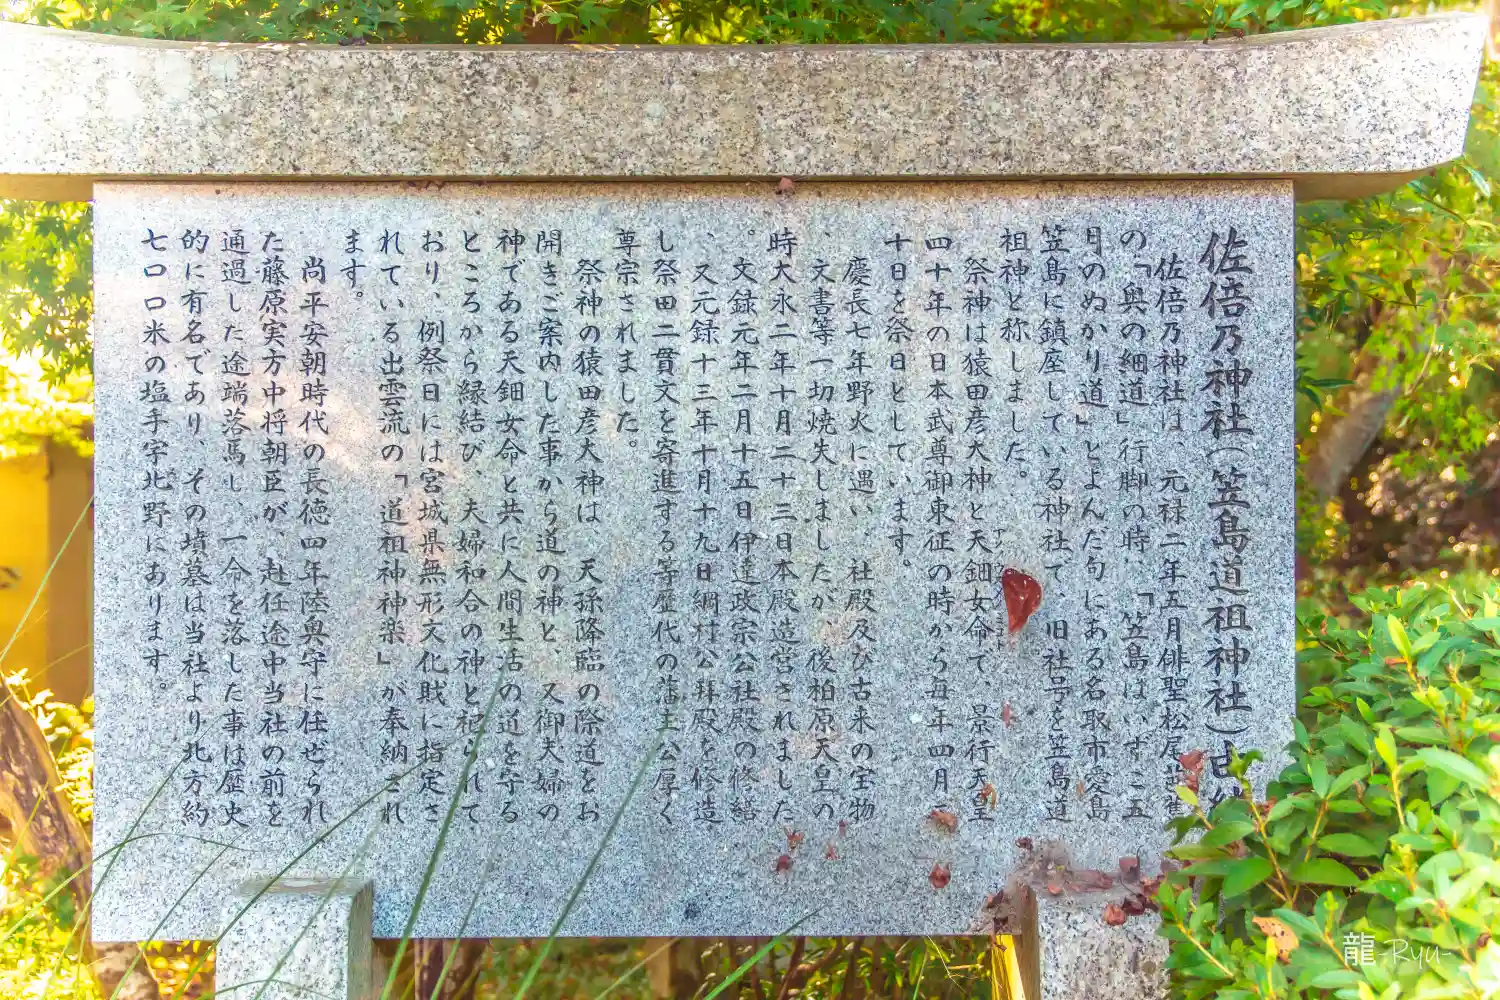 佐倍乃神社(笠島道祖神社)古
佐倍乃神社は、元禄二年五月俳聖松尾芭蕉
の「奥の細道」行脚の時、「笠島はいずこ五
月のぬかり道」とよんだ句にある名取市愛島
笠島に鎮座している神社で、旧社号を笠島道
祖神と称しました。
祭神は猿田彦大神と天鈿女命で、景行天皇
四十年の日本武尊御東征の時から毎年四月二
十日を祭日としています。
慶長七年野火に遇い、社殿及び古来の宝物
、文書等一切焼失しましたが、後柏原天皇の
時大永二年十月二十三日本殿造営されました
。文録元年二月十五日伊達政宗公社殿の修繕
、又元録十三年十月十九日綱村公拝殿を修造
し祭田二貫文を寄進する等歴代の藩主公厚く
尊宗されました。
祭神の猿田彦大神は、天孫降臨の際道をお
開きご案内した事から道の神と、又御夫婦の
神である天鈿女命と共に人間生活の道を守る
ところから縁結び、夫婦和合の神と祀られて
おり、例祭日には宮城県無形文化財に指定さ
れている出雲流の「道祖神神楽」が奉納され
ます。
尚平安朝時代の長徳四年陸奥守に任ぜられ
た藤原実方中将朝臣が、赴任途中当社の前を
通過した途端落馬し、一命を落した事は歴史
的に有名であり、その墳墓は当社より北方約
七〇〇米の塩手字北野にあります。
龍-Ryu-